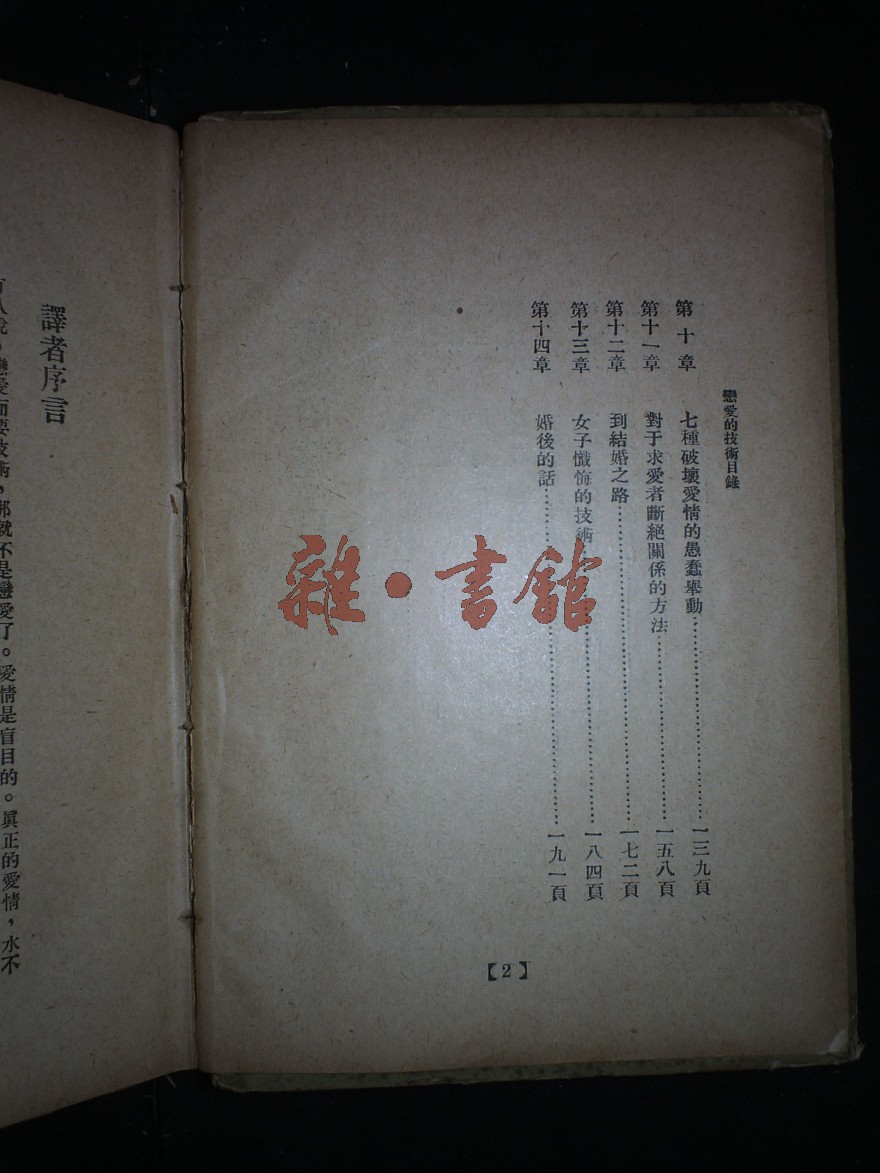 戀愛的技術目錄
第十章 七種破壞愛情的愚蠢舉動……一三九頁
第十一章 對于求愛者斷絕關係的方法……一五八頁
第十二章 到結婚之路……一七二頁
第十三章 女子懺悔的技術……一八四頁
第十四章 婚後的話……一九一頁
【2】
雜·書館
譯者序言
說，戀愛而要技術，那就不是戀愛了。愛情是盲目的。眞正的愛情，水不